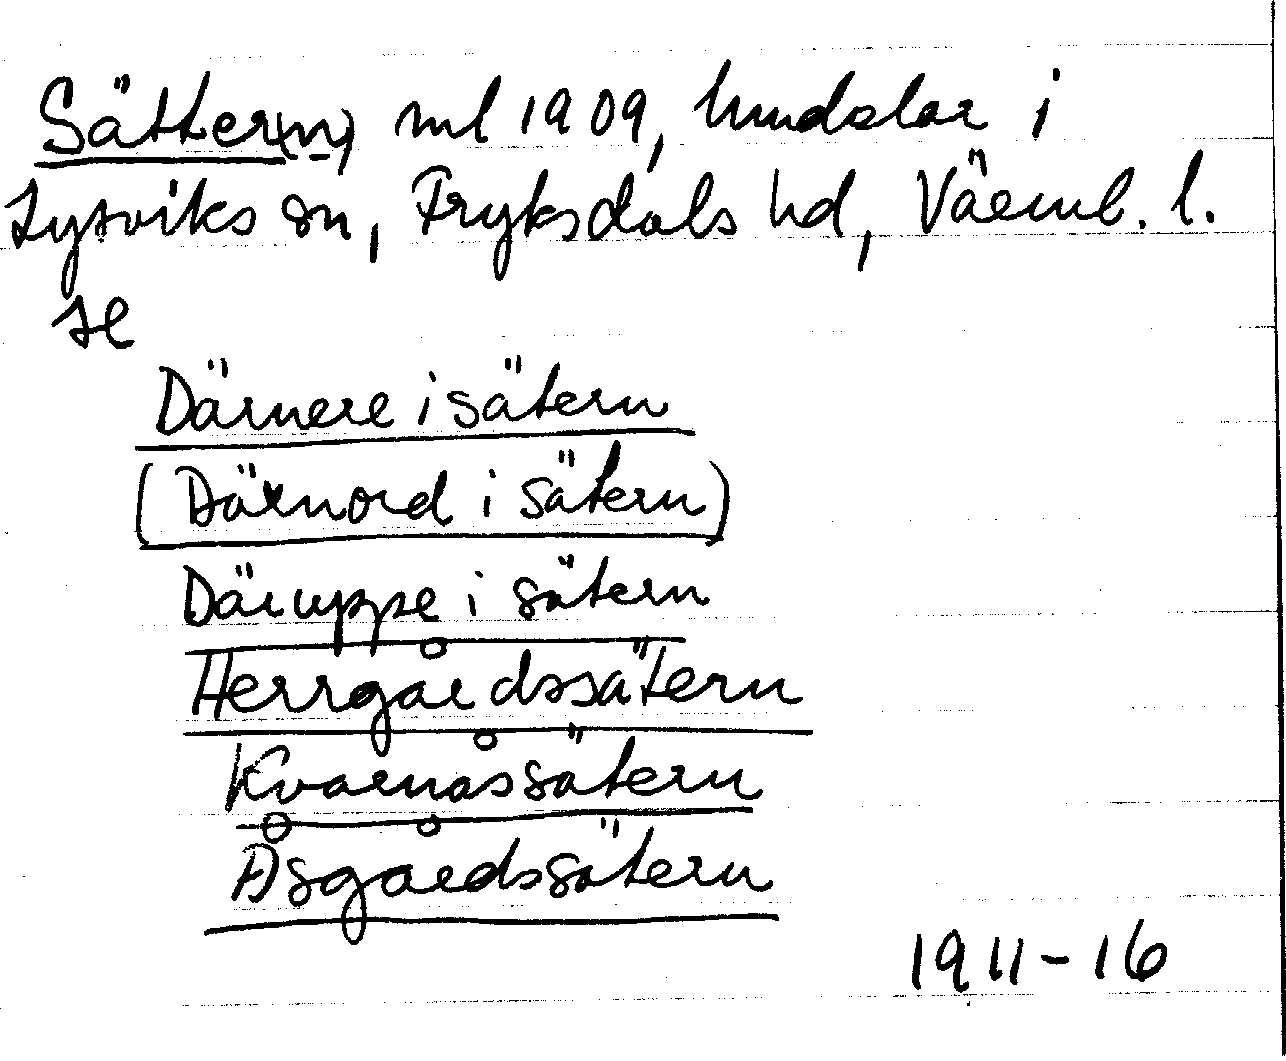 Sätter(n) ml 1909, lundelar i
Lysviks sn, Fryksdals hd, Värml. l.
se
Därnere i sätern
(Därnord i sätern)
Däruppe i sätern
Herrgårdssätern
Kvarnåssätern
Åsgårdssätern
1911-16